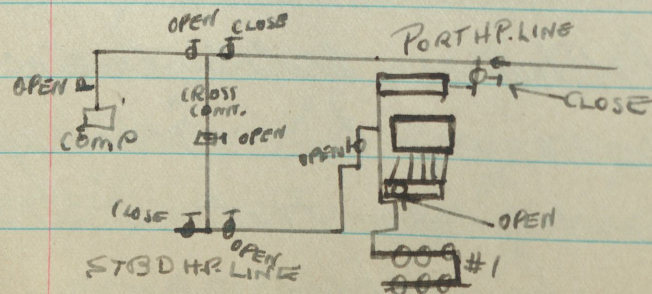 OPEN
CLOSE
PORT H.P. LINE
OPEN
CROSS
CONN.
CLOSE
COMP
OPEN
OPEN
CLOSE
OPEN
OPEN
STBD H.P. LINE
#1